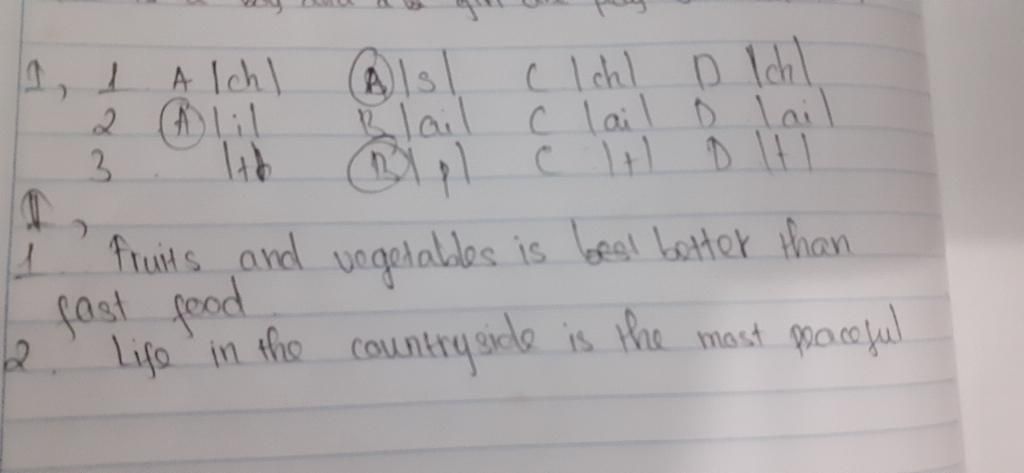 girl are play
I, 1 A |ch| A |s| C |ch| D |ch|
2 A |i| B |ai| C |ai| D |ai|
3 |t| B |p| C |t| D |t|
II,
1 fruits and vegetables is better than
fast food
2. Life in the countryside is the most peaceful